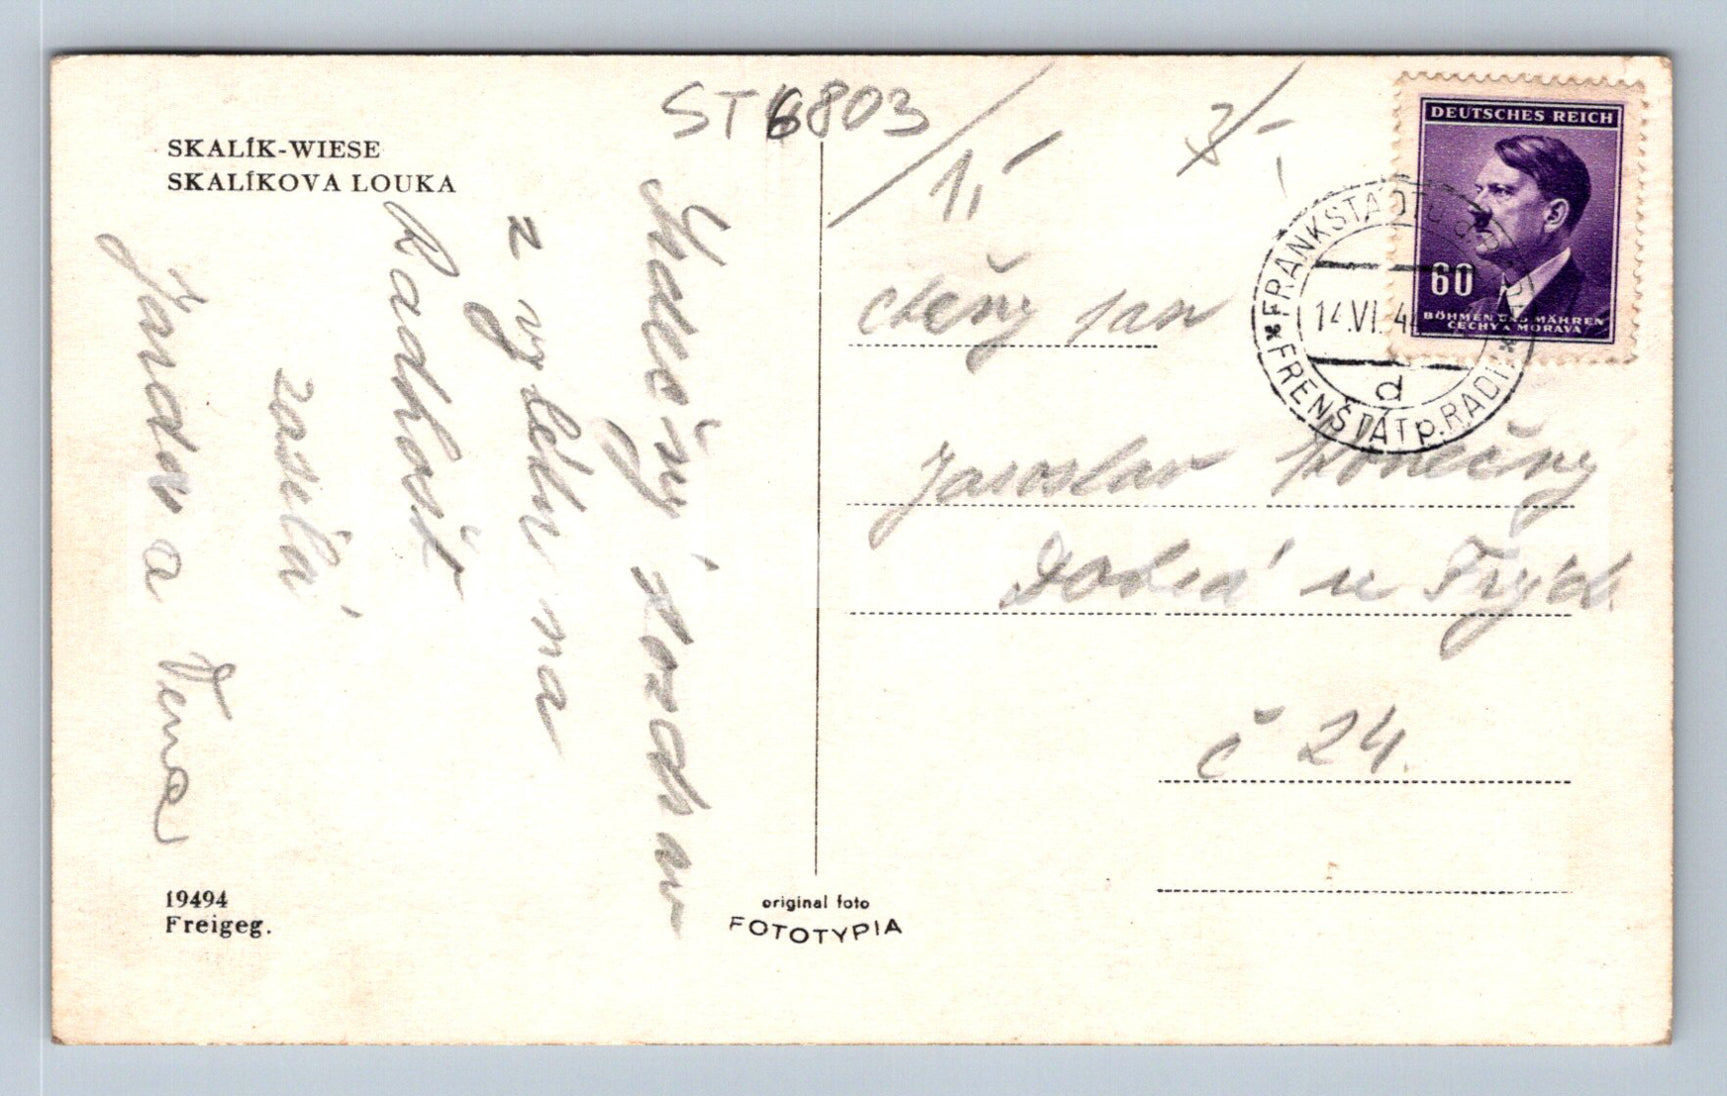 SKALÍK-WIESE
SKALÍKOVA LOUKA
ST6803
1,-
Srdečný pozdrav
z výletu na
Radhošť
zasílá
Jarda a
19494
Freigeg.
original foto
FOTOTYPIA
DEUTSCHES REICH
60
BÖHMEN UND MÄHREN
ČECHY A MORAVA
FRANKSTADT
14.VI.44
d
FRENŠTÁT p. RADH.
ctěný pan
Jaroslav Konečný
Dobrá u Frýd.
č 24.